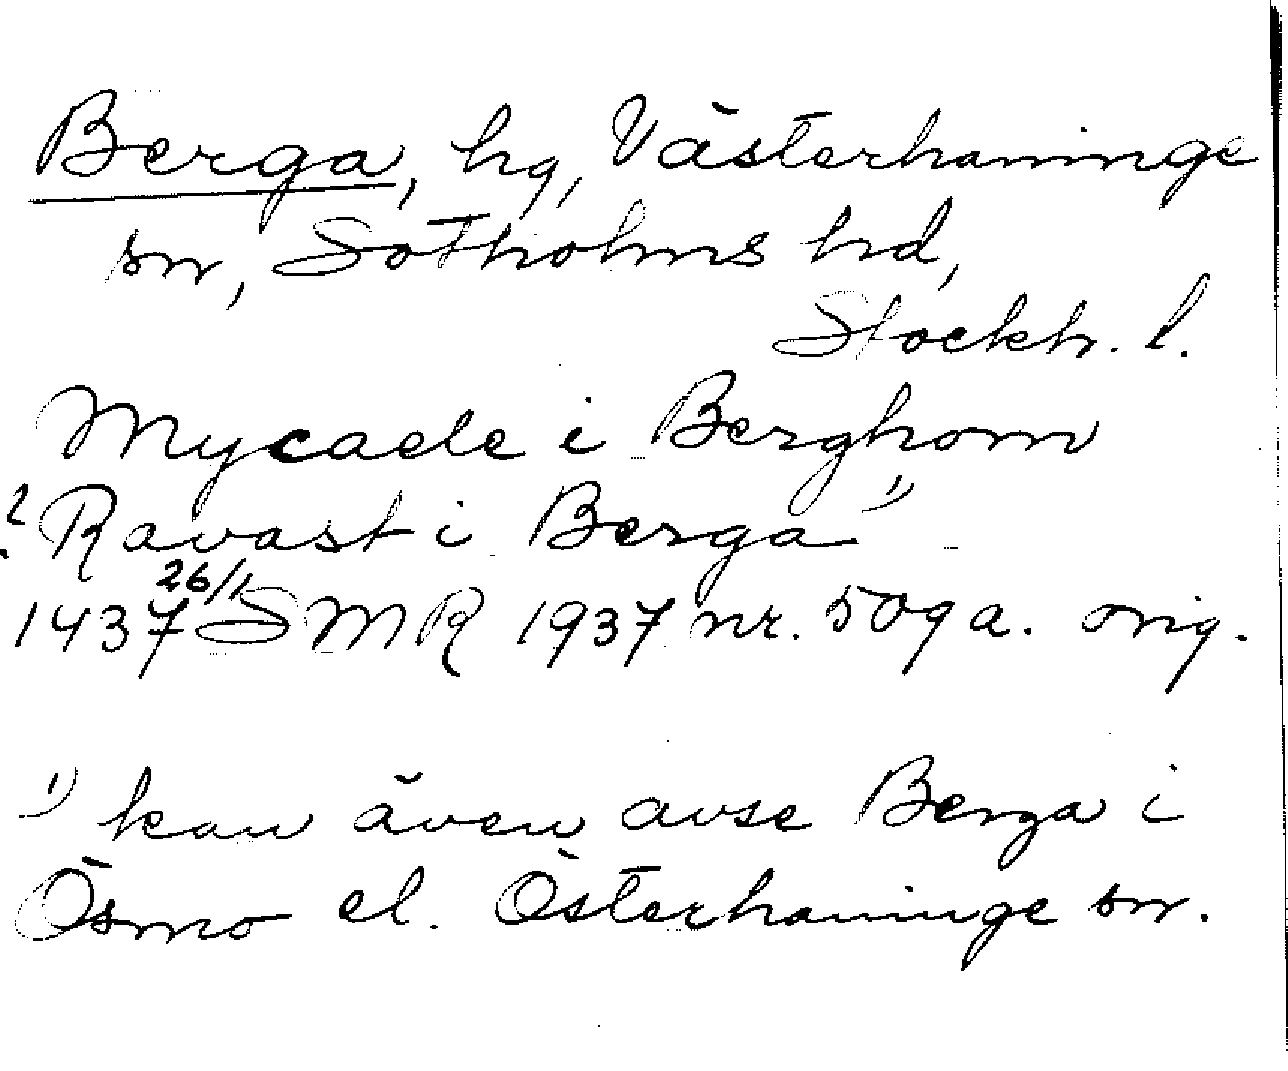 Berga, hg, Västerhaninge
sn, Sotholms hd,
Stockh. l.
Mycaele i Berghom
? Ravast i Berga 1)
1437 26/1 SMR 1937 nr. 509 a. orig.
1) kan även avse Berga i
Ösmo el. Österhaninge sn.